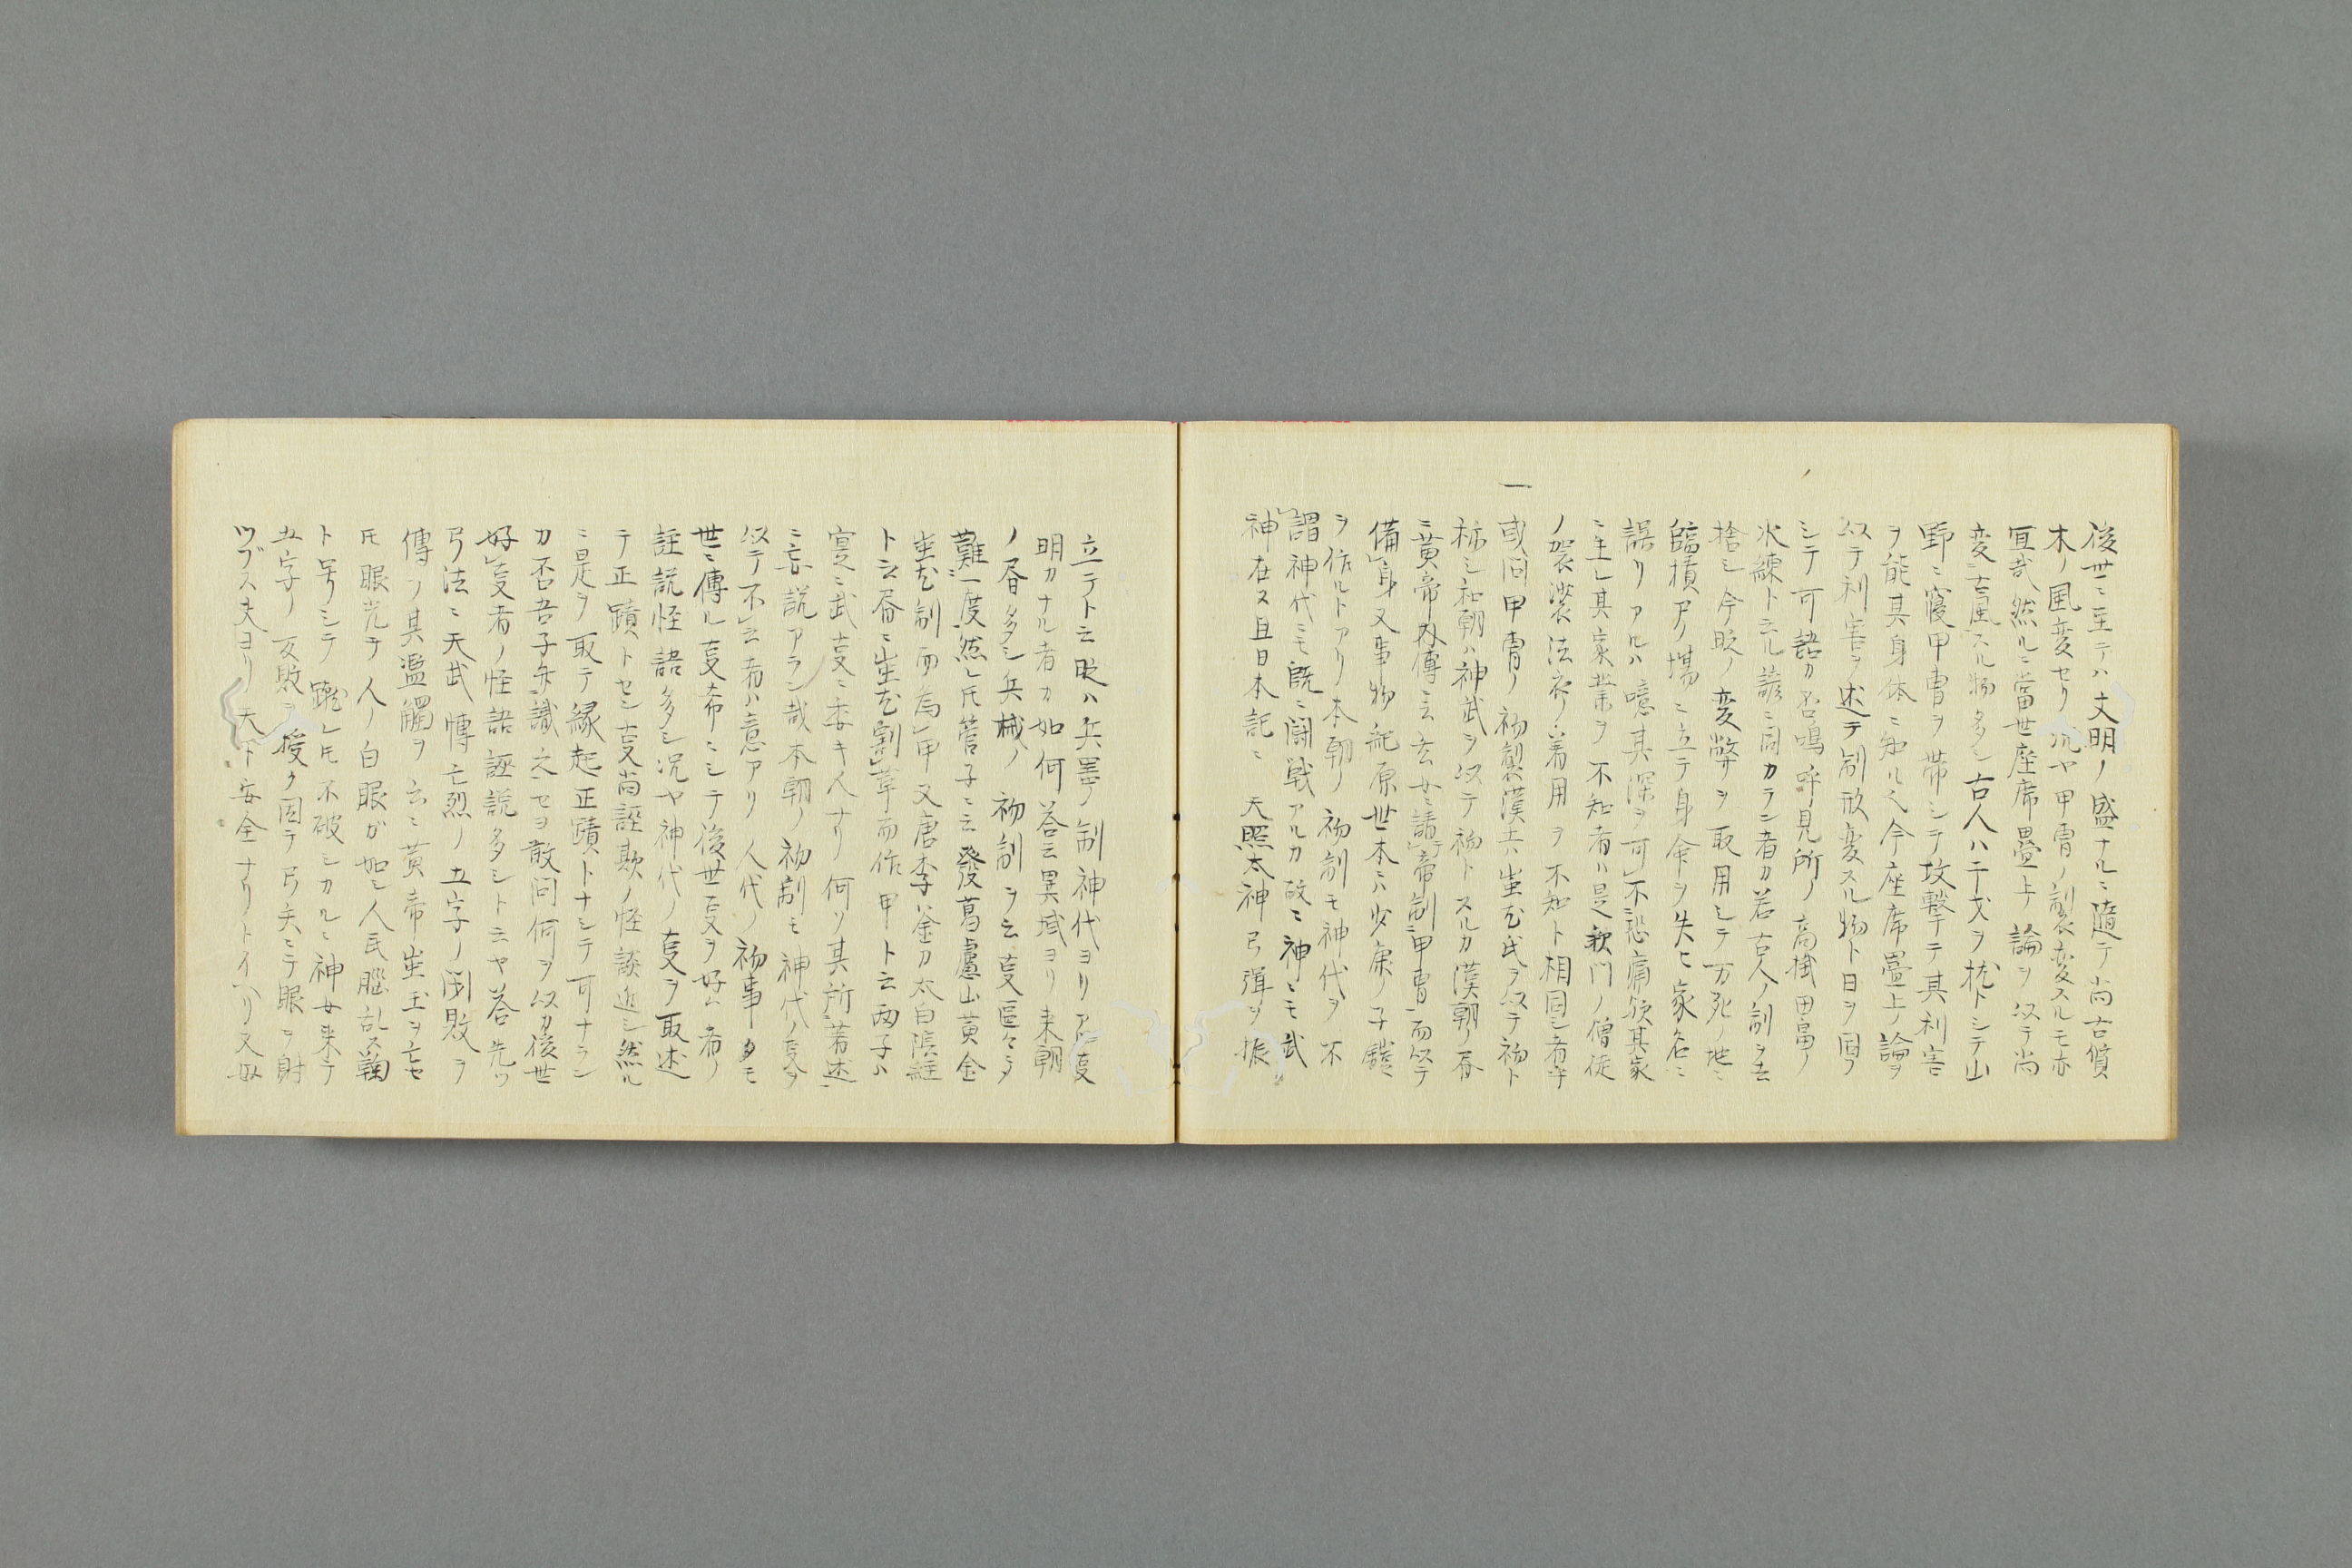 後世ニ至テハ文明ノ盛ナルニ随テ尚古質
木ノ風変セリ況ヤ甲冑ノ製変スルモ亦
冝哉然ルニ當世座席畳上ノ論ヲ以テ尚
変古風スル物多シ古人ハ干戈ヲ枕トシテ山
野ニ寝甲冑ヲ帯シテ攻撃テ其利害
ヲ能其身体ニ知ル今座席畳上ノ論ヲ
以テ利害ヲ述テ制形変スル物ト日ヲ同
シテ可語カ否嗚呼見所ノ高損田畠ノ
水練ト云ル諺ニ同カラン者カ若古人ノ制ヲ
捨シ今時ノ変弊ヲ取用シテ万死ノ地ニ
臨損ノ場ニ立テ身命ヲ失ヒ家名ニ
誤リアルハ噫其深ヲ可不恐痛欤其家
ニ生レ其家業ヲ不知者ハ是釈門ノ僧徒
ノ袈裟法衣ノ着用ヲ不知ト相同シ者乎
一
或問甲冑ノ初製漢土蚩尤氏ヲ以テ初ト
称シ和朝ハ神武ヲ以テ初トスルカ漢朝ノ昏
ニ黄帝内傳ニ云玄女ニ請帝制甲冑而以テ
備身又事物紀原世本ニハ少康ノ子鎧
ヲ作ルトアリ本朝ノ初制モ神代ヲ不
謂神代ニモ既ニ闘戦アルカ故ニ神ニモ武
神在ス且日本記ニ 天照太神弓弭ヲ振
立テト云時ハ兵噐ノ制神代ヨリアル叓
明カナル者カ如何答云異域ヨリ来朝
ノ昏多シ兵械ノ初制ヲ云叓區々タ
難一度然レ氏管子ニ云發葛盧山黄金
蚩尤制而為甲又唐李ハ釜カ太白陰經
ト云昏ニ蚩尤割革而作甲ト云両子ハ
寔ニ武叓ニ委キ人ナリ何ソ其所著述
ニ妄説アラン哉本朝ノ初制モ神代ノ叓ヲ
以テ不云者ハ意アリ人代ノ初事タモ
世ニ傳ル叓希ニシテ後世叓ヲ好ム者ノ
誣説怪語多シ况ヤ神代ノ叓ヲ取述
テ正蹟トセシ叓尚誣欺ノ怪談近シ然ル
ニ是ヲ取テ縁起正蹟トナシテ可ナラン
カ否吾子亦識之ヤヨ敢問何ヲ以カ後世
好叓者ノ怪語誣説多シト云ヤ答先ツ
弓法ニ天武博士烈ノ五字ノ図段ヲ
傳ソ其濫觴ヲ云ニ黄帝蚩王ヲ亡セ
氏眼光テ人ノ白眼が如シ人民腦乱ス鞠
ト号シテ蹴レ氏不破シカルニ神女来テ
五字ノ反敗ヲ授ク因テ弓矢ニテ眼ヲ射
ツブス夫ヨリ天下安全ナリトイヘリ又奴